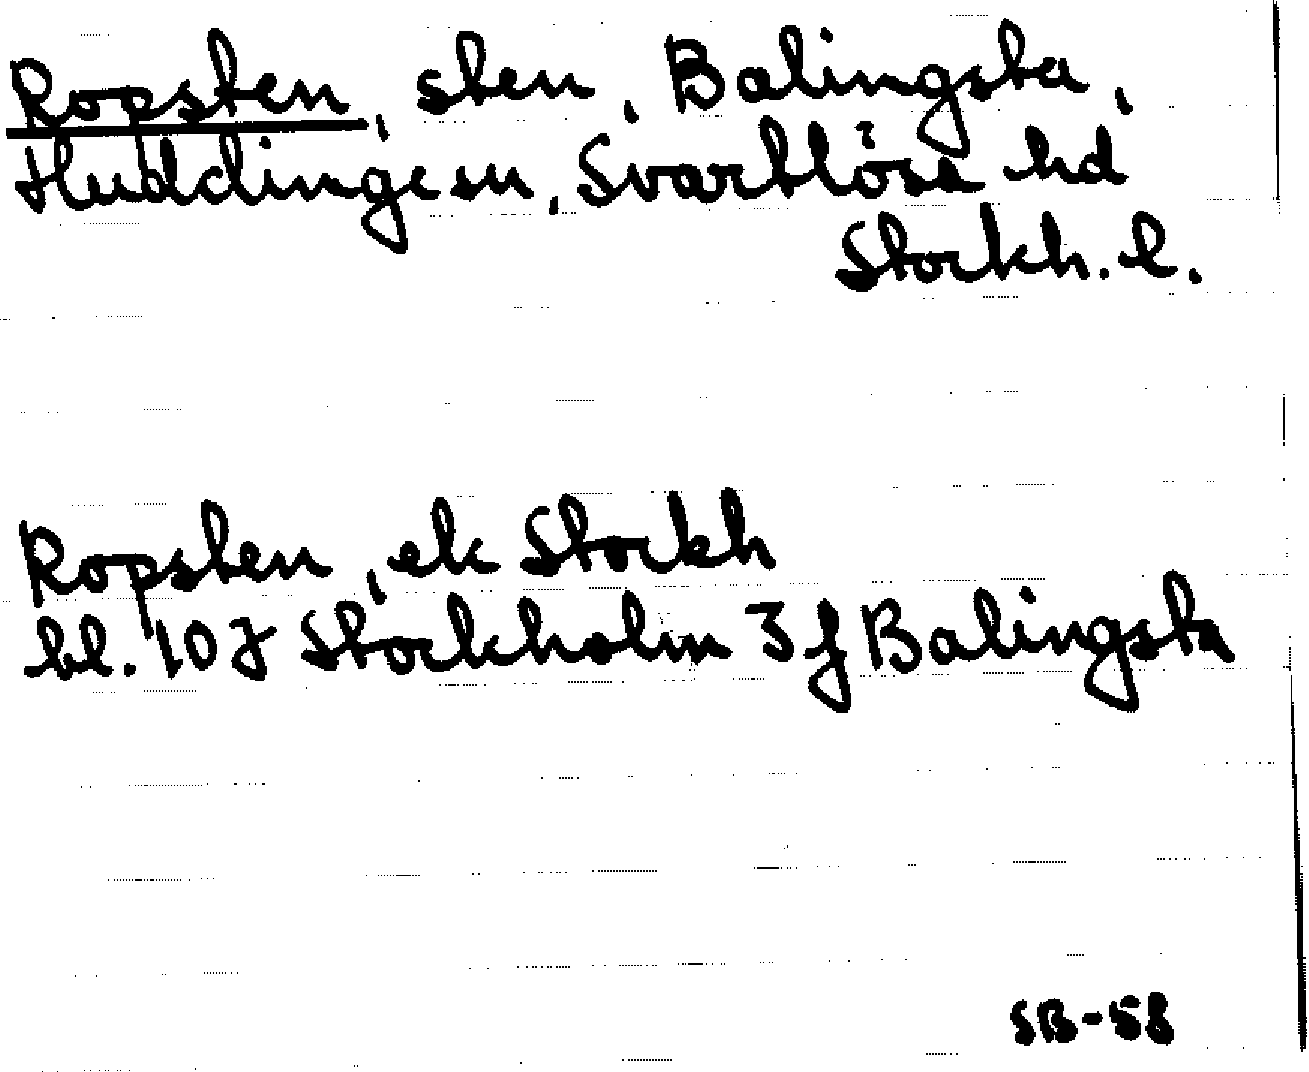 Ropsten, sten, Balingsta,
Huddinge sn, Svartlösa hd
Stockh. l.
Ropsten, ek Stockh
bl. 107 Stockholm 3 f Balingsta
SB-58